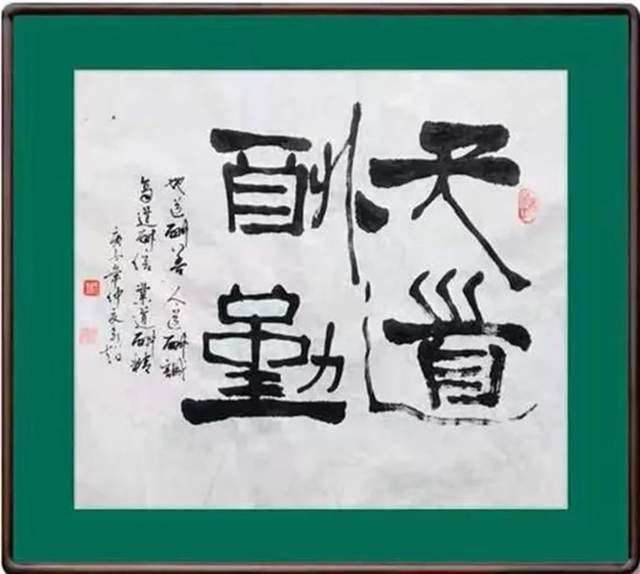 天道
酬勤
地道酬善 人道酬誠
商道酬信 業道酬精
庚子年仲夏